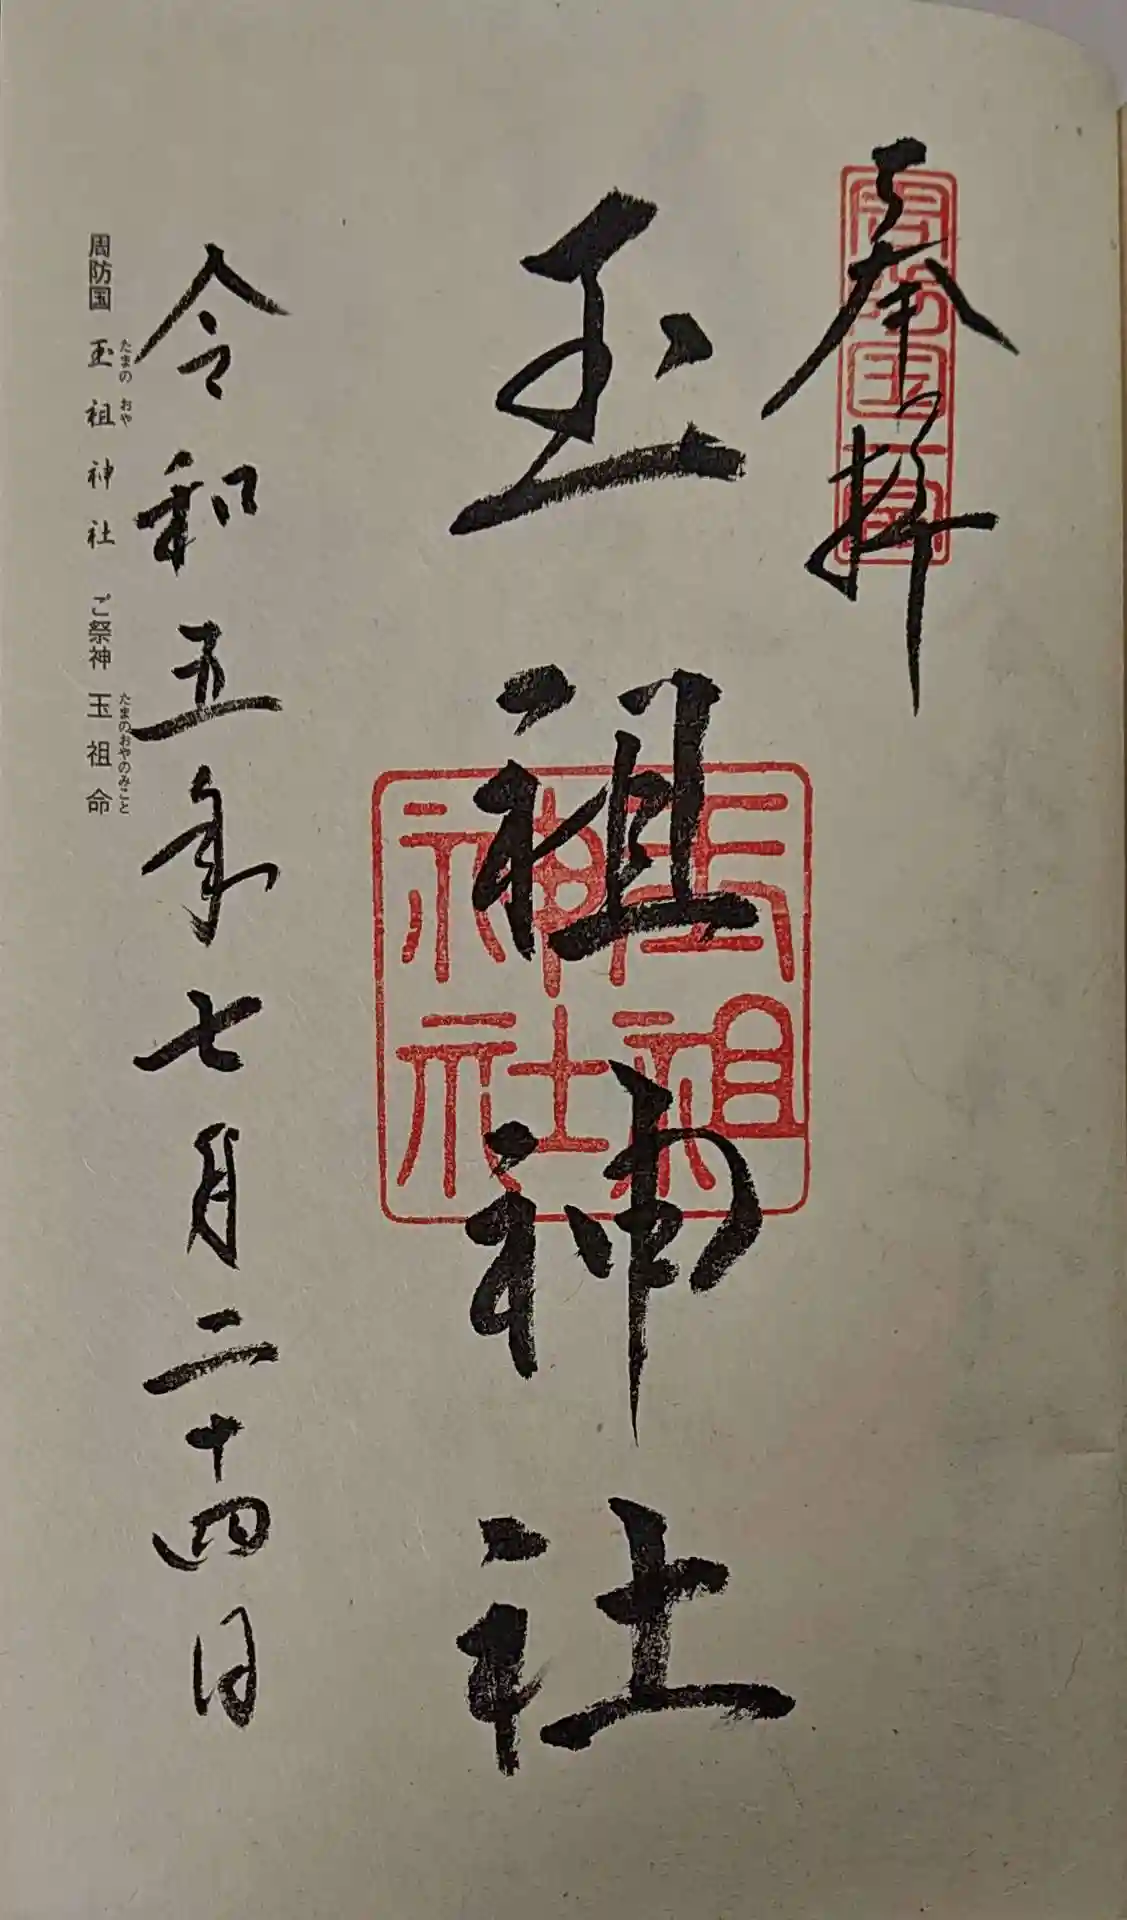 奉拝
周防国一宮
玉祖神社
玉祖神社
令和五年七月二十四日
周防国 玉祖神社 ご祭神 玉祖命
たまの おや たまのおやのみこと